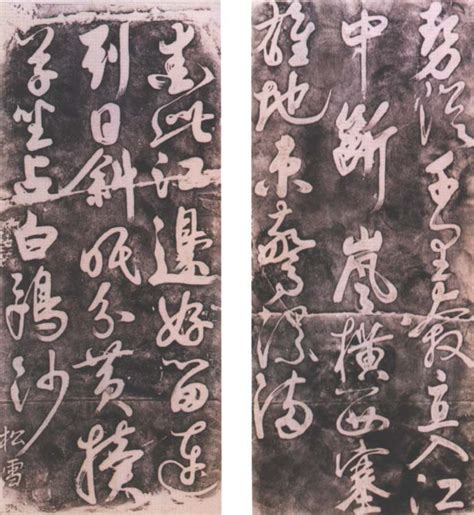 勢從千里奔直入江
中斷嵐橫西塞
雄地束驚流滿
愛此江邊好留連
到日斜眠分黃犢
草坐占白鷗沙
松雪